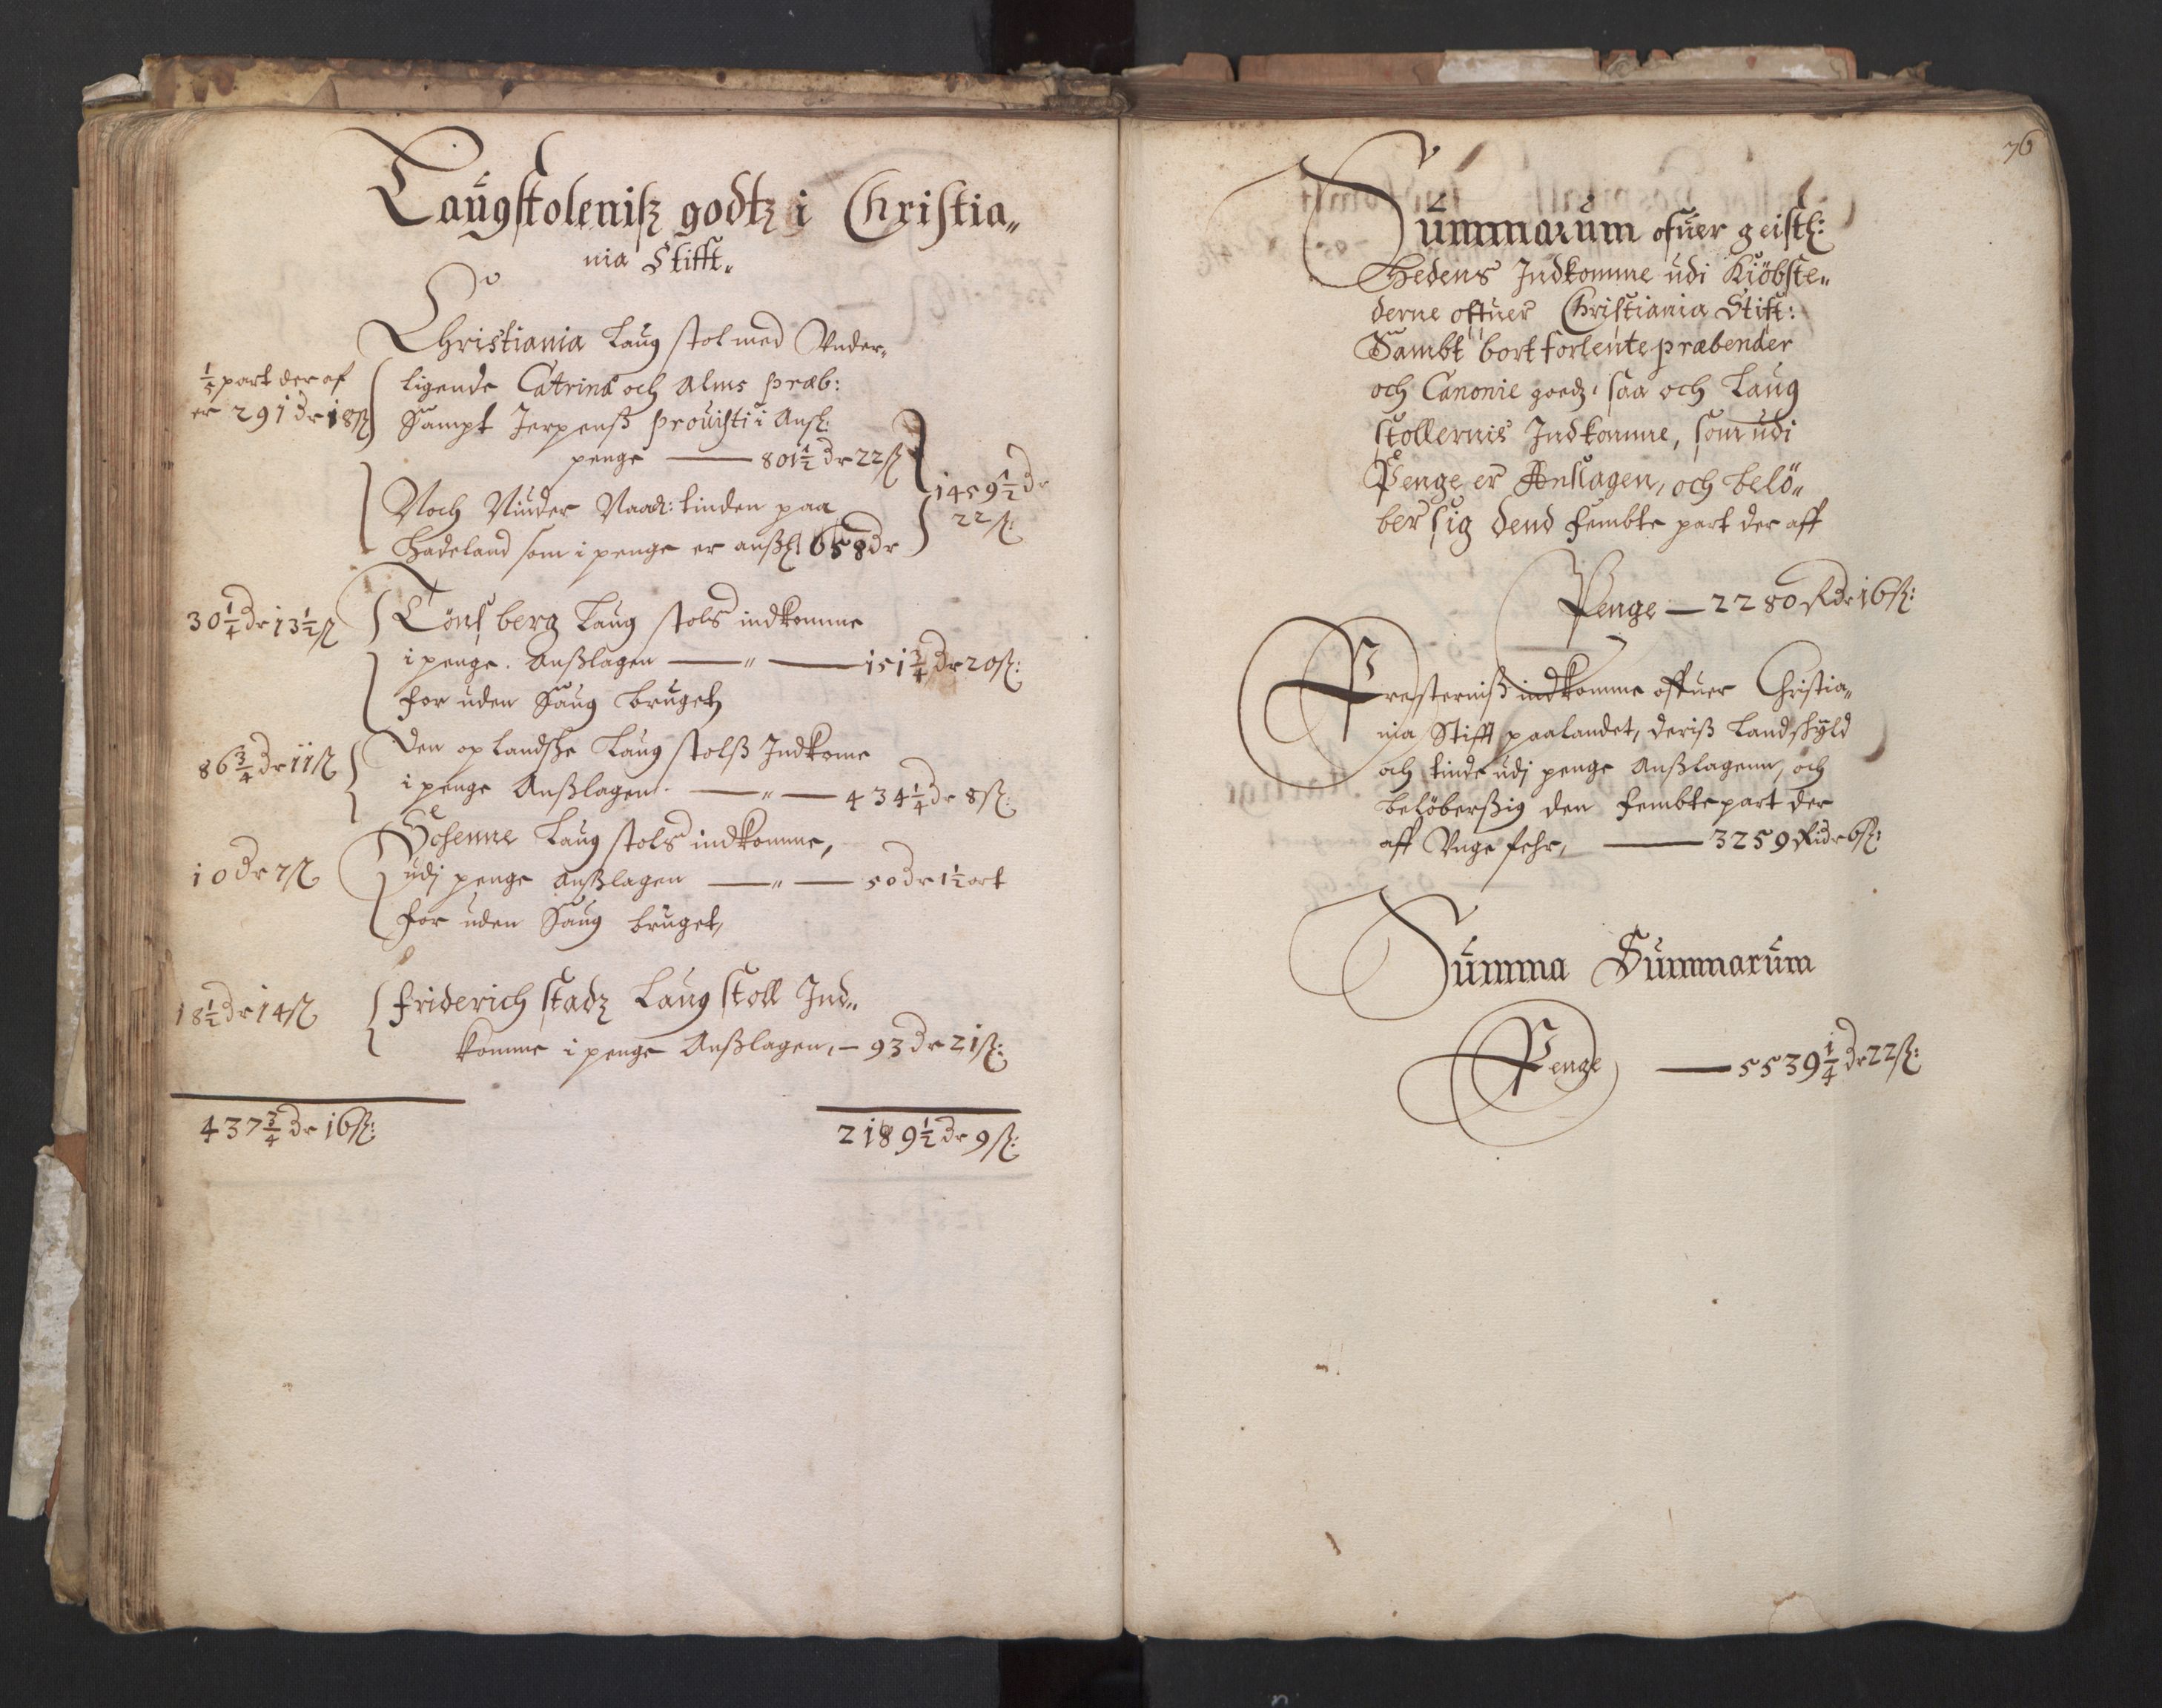 Laugstoleniss godtz i Christia„
nia Stifft„
Christiania Laug stol med Vnder„
1/5 part der af
er 291 dr 18 ß
ligende Catrinæ och Alms præb:
Sampt Jerpenß provisti i Ansl:
penge — 801½ dr 22 ß
Noch Niuder Naad: tinden paa
Hadeland som i penge er anßl 658 dr
1459½ dr
22 ß:
30¼ dr 13½ ß
Tönsberg Laug stols indkomme
i penge. Anßlagen — „ — 151¾ dr 20 ß:
for uden Saug bruget
86¾ dr 11 ß
Den oplandsche Laug stolß Indkome
i penge Anßlagen. — „ — 434¼ dr 8 ß:
10 dr 7 ß
Schenne Laug stols indkomme,
udj penge Anßlagen — „ — 50 dr 1½ ort
for uden Saug bruget,
18½ dr 14 ß
Friderich stadz Laug stoll Ind„
komme i penge Anßlagen, — 93 dr 21 ß:
437¾ dr 16 ß:
2189½ dr 9 ß:
76
Summarum ofuer geistl:
Hedens Indkomme udi Kiöbste„
derne offuer Christiania Stift:
Sambt bort forlente præbender
och Canonie goedz, saa och Laug
stollernis Indkomme, som udi
Penge er Anslagen, och belö„
ber sig dend Fembte part der aff
Penge — 2280 Rdr 16 ß:
Presterniß indkomme offuer Christia„
nia Stifft paa landet, deriß Landskyld
och tinde udj penge Anßlagenn, och
belöberßig den Fembte part der
aff Vnge fehr, — 3259 Ridr 6 ß:
Summa Summarum
Penge — 5539¼ dr 22 ß: